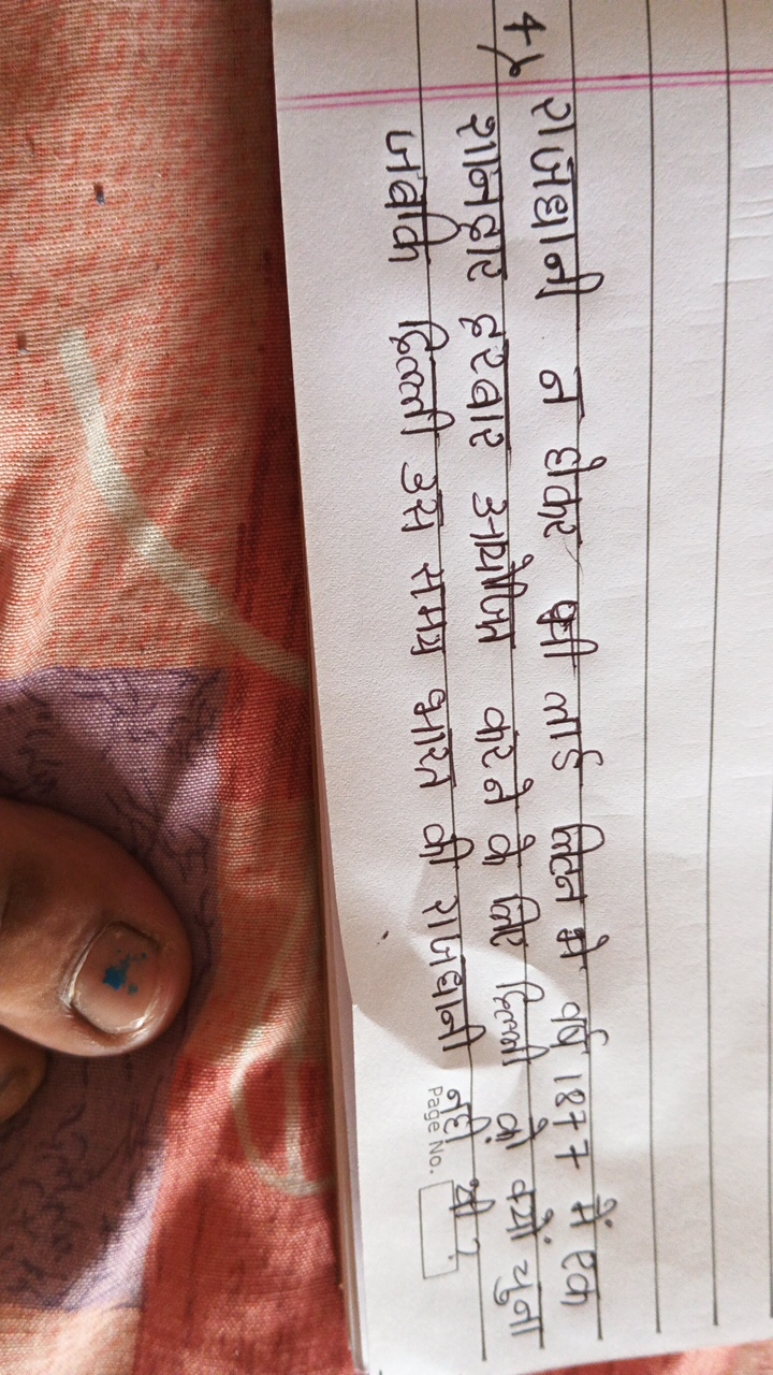 4) राजधानी न होकर भी लार्ड लिटन ने वर्ष 1877 में एक
शानदार दरबार आयोजित करने के लिए दिल्ली को क्यों चुना
जबकि दिल्ली उस समय भारत की राजधानी नही थी ?
Page No.